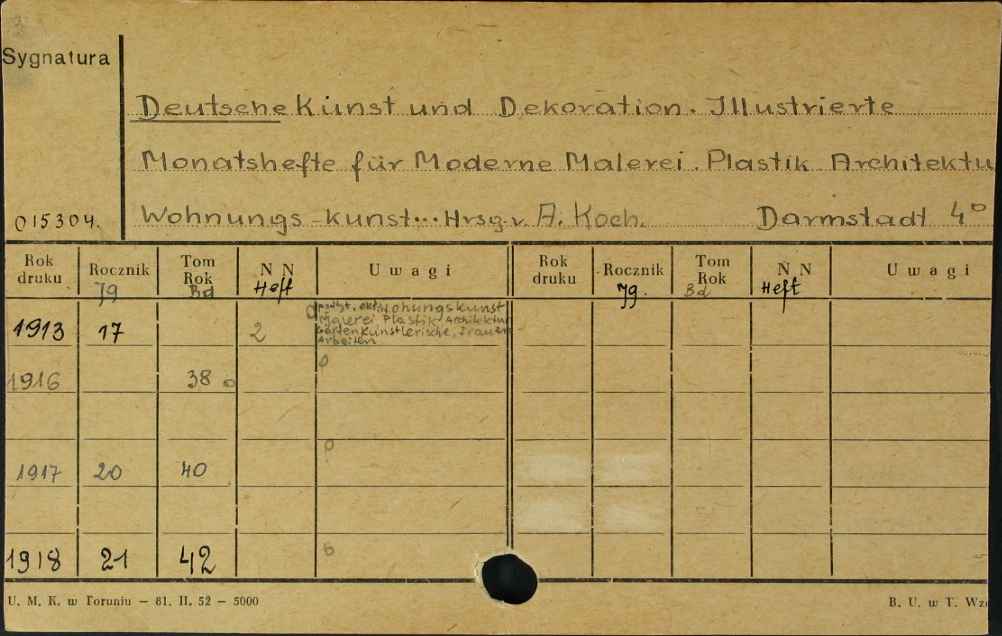 3
Sygnatura
Deutsche Kunst und Dekoration. Illustrierte
Monatshefte für Moderne Malerei. Plastik Architektu
015304. Wohnungs-kunst... Hrsg. v. A. Koch. Darmstadt 4°
Rok druku Rocznik Tom Rok N N Uwagi Rok druku Rocznik Tom Rok N N Uwagi
Jg Bd Heft Jg. Bd Heft
1913 17 2 Wohungskunst
Malerei Plastik Architektur
Gärten Künstlerische, Frauen
Arbeiten
1916 38 o o
o
1917 20 40
1918 21 42 o
U. M. K. w Toruniu — 61. II. 52 — 5000 B. U. w T. Wzó